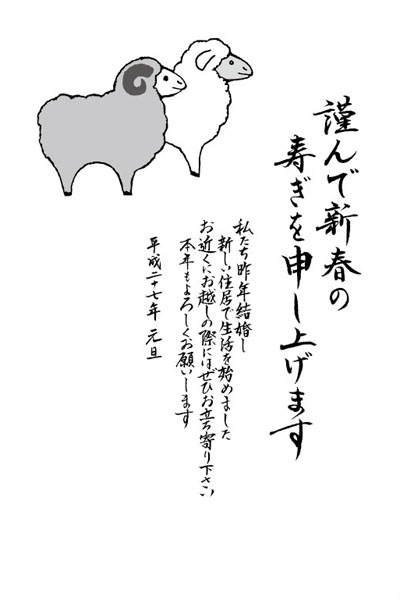 謹んで新春の
寿ぎを申し上げます
私たち昨年結婚し
新しい住居で生活を始めました
お近くにお越しの際にはぜひお立ち寄り下さい
本年もよろしくお願いします
平成二十七年 元旦